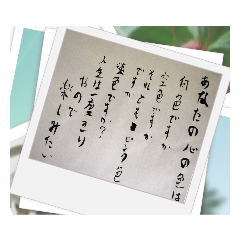 あなたの心の色は
何色ですか
空色ですか
それともピンク色
ですか
淡色ですか?
人生は一度きり
なので
楽しみたい